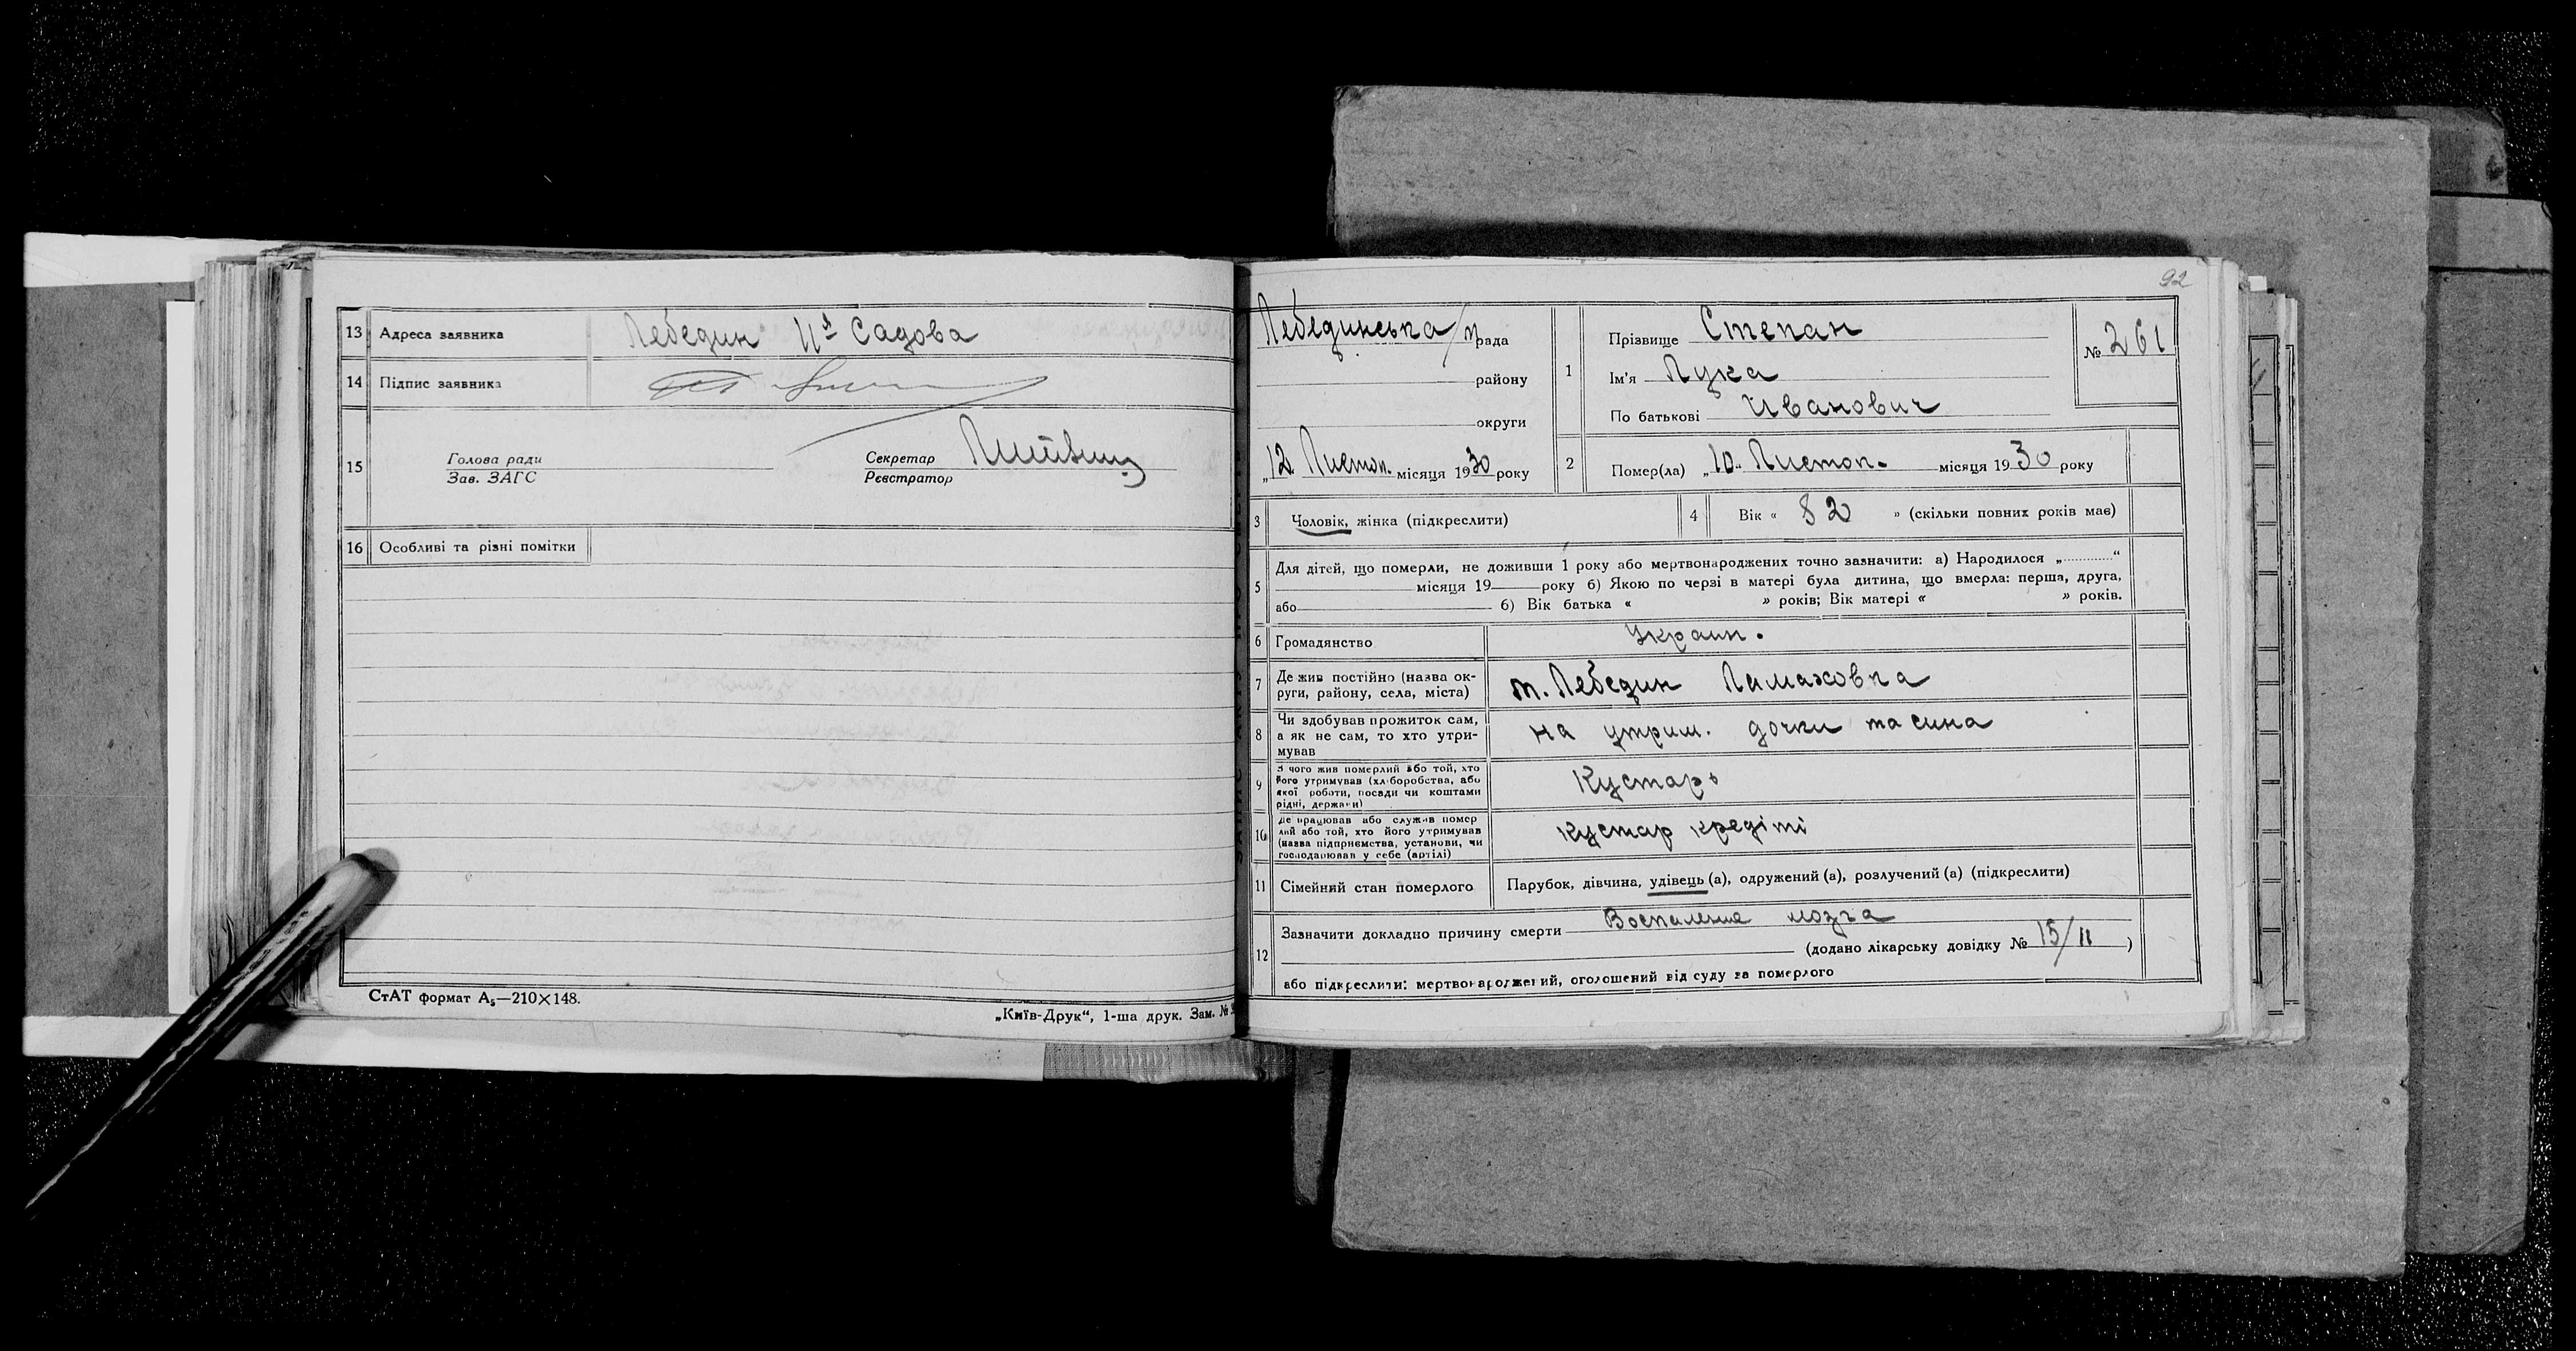 13 Адреса заявника Лебедин IIя Садова
14 Підпис заявника
15 Голова ради
Зав. ЗАГС
Секретар
Реєстратор
16 Особливі та різні помітки
СтАТ формат А5—210×148.
„Київ-Друк“, 1-ша друк. Зам. №
92
Лебединська/м рада
району
округи
„12 Листоп. місяця 1930 року
1 Прізвище Степан
Ім'я Лука
По батькові Иванович
№ 261
2 Помер(ла) „10„ Листоп. місяця 1930 року
3 Чоловік, жінка (підкреслити)
4 Вік « 82 » (скільки повних років має)
5 Для дітей, що померли, не доживши 1 року або мертвонароджених точно зазначити: а) Народилося „ “
місяця 19 року б) Якою по черзі в матері була дитина, що вмерла: перша, друга,
або б) Вік батька « » років; Вік матері « » років.
6 Громадянство Украин.
7 Де жив постійно (назва ок-
руги, району, села, міста)
м. Лебедин
8 Чи здобував прожиток сам,
а як не сам, то хто утри-
мував
на утрим. дочки та сина
9 З чого жив померлий або той, хто
його утримував (хліборобства, або
якої роботи, посади чи коштами
рідні, держави)
Кустарь
10 Де працював або служив помер
лий або той, хто його утримував
(назва підприємства, установи, чи
господарював у себе (артілі)
кустар кредіті
11 Сімейний стан померлого Парубок, дівчина, удівець (а), одружений (а), розлучений (а) (підкреслити)
12 Зазначити докладно причину смерти Воспаление мозга
(додано лікарську довідку № 15/11 )
або підкреслити: мертвонароджений, оголошений від суду за померлого